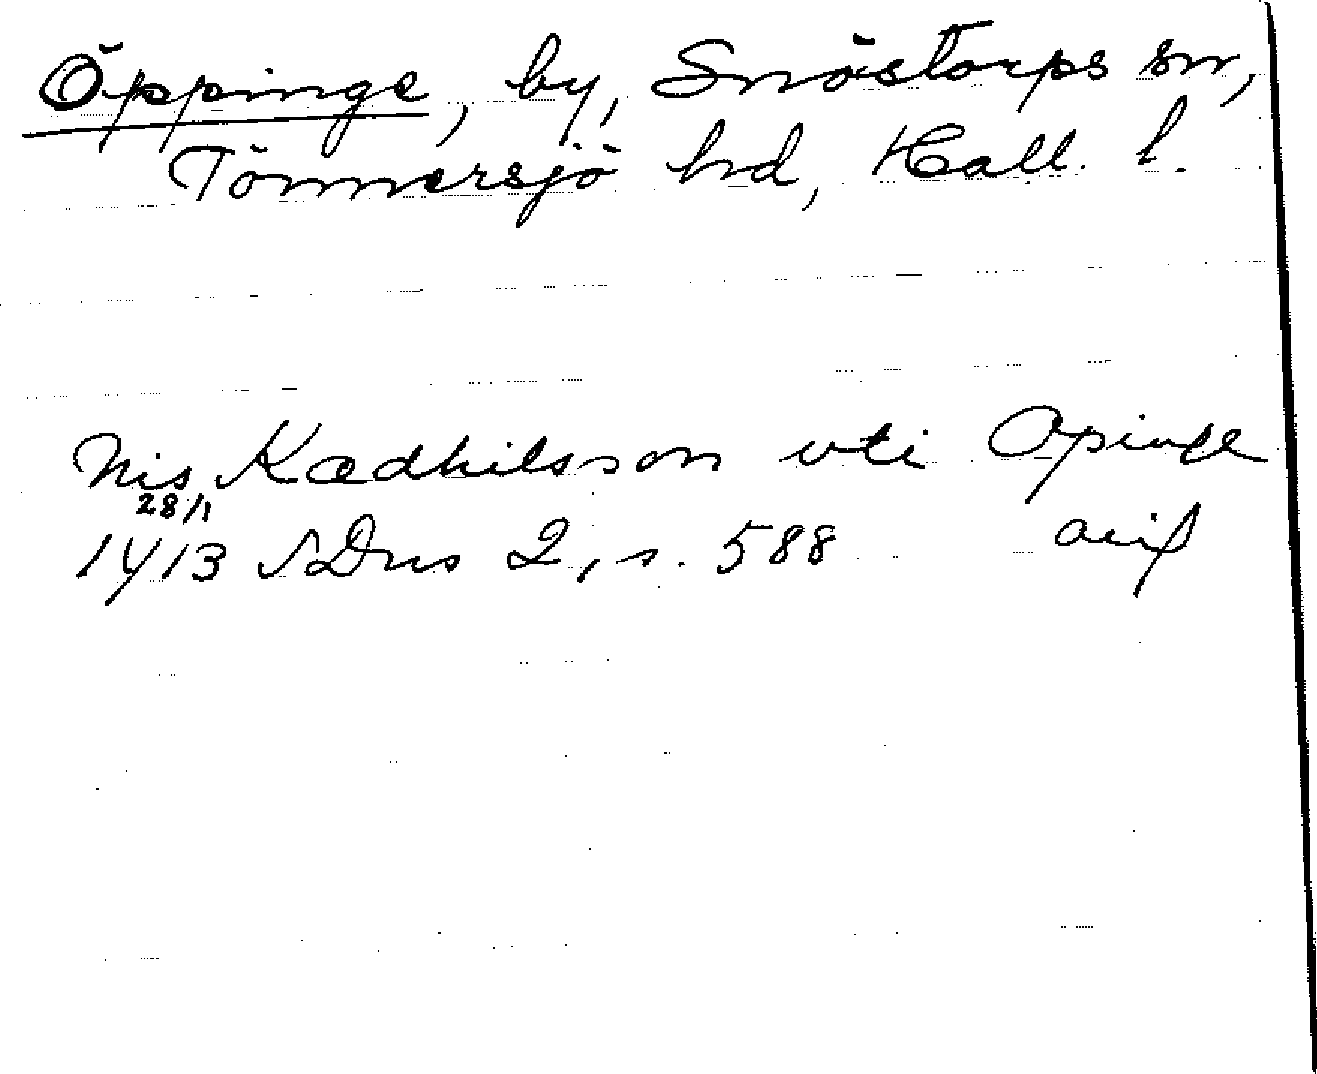 Öppinge, by, Snöstorps sn,
Tönnersjö hd, Hall. l.
Nis Kædhilsson vti Opinge
28/1
1413 SDns 2, s. 588